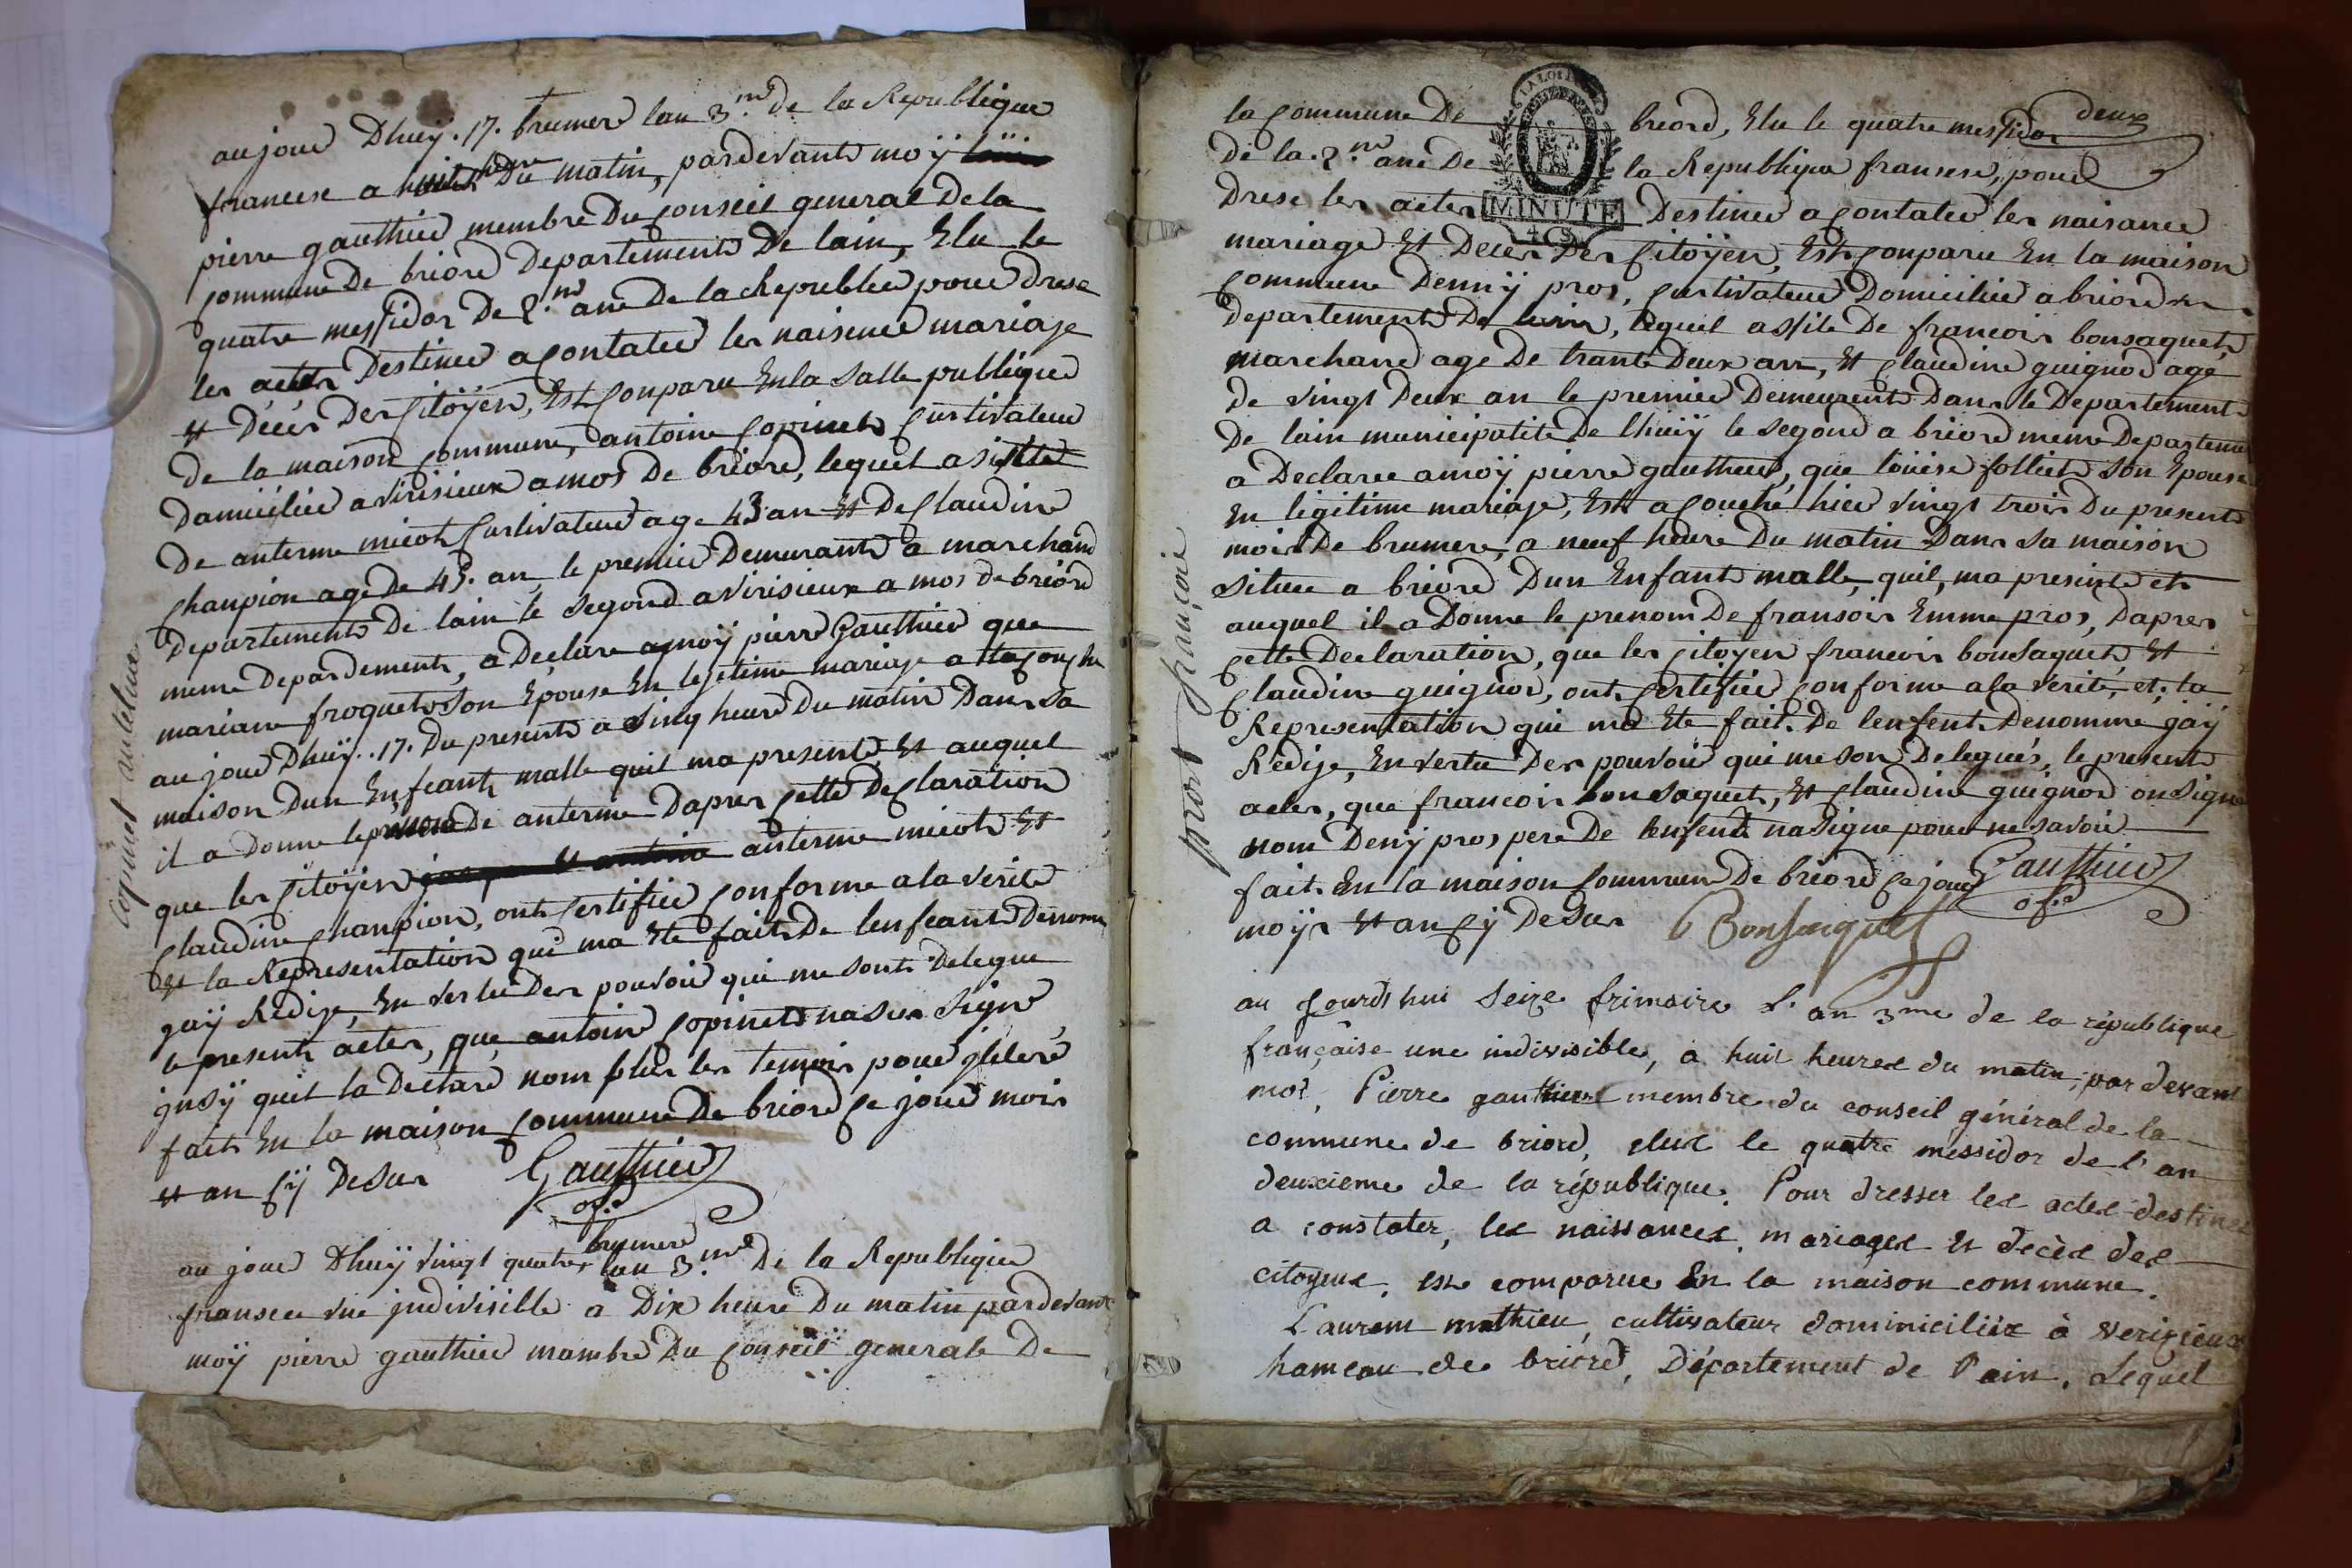 aujour Dhuÿ. 17. brumer lan 3.me de la Republique
francese a huit heure Du matin, pardevant moÿ
pierre gauthier membre Du Conseil general De la
Commune De briord Departement De lain, Elu le
quatre messidor De 2.me ane De la Republice pour Drese
les actes Destinee a Contater les naisence mariaje
et Décés Des Citoÿen, Est Conparu En la salle publique
De la maison Commune, antoine Copinet Cultivateur
Damicilié a virisieux amos De briord, lequel asisté
De anterme micot Cultivateur age 43 an Et De Claudine
Chanpion age De 45. an, le premier Demurant a marchand
Departement De lain le segond a virisieux a mos de briord
meme Depardement, a Déclare a moÿ pierre Gauthier que
mariane froquet son Epouse En lejetime mariaje a
au jour Dhuÿ.. 17. Du present a sinq heure Du matin Dans sa
maison Dun Enfeant malle quil ma presenté, Et auquel
il a Donne le De anterme Dapres Cette Declaration
que les Citoÿen anterme micot Et
Claudine Chanpion, ont Certifiée Conforme a la verite
Et la Representation qui ma Ete fait De lenfeant Denome
jaÿ Redije, En vertu Des pouvoir qui me sont Delegue
le present actes, que antoine Copinet na sus signe
insÿ quil la Declaré nom plus les temoir pour
fait En la maison Commune De briord Ce jour mois
et an Cÿ Desus Gauthier
of.r
Copinet antelme
au jour Dhuÿ vingt quatre brumere lan 3.me De la Republique
fransee une jndivisible a Dix heure Du matin pardevant
moÿ pierre gauthier mambre Du Conseil generale De
deux
la Commune De briord, Elu le quatre messidor
De la. 2.me ane De la Republique fransese, pour
Drese les actes Destinee a Contatee les naisance
MINUTE
mariage Et Deces Des Citoÿen, Est Conparu En la maison
Commune Denniÿ pros, Cultivateur Domicilier a briord
Departement De lain, lequel assite De francois bonsaquet
marchand age De trante Deux an, Et Claudine guignod age
De vingt Deux an le premier Demeurent Dans le Departement
De lain municipalite De lhuiÿ le segond a briord meme Departeme
a Declaree a moÿ pierre gauthier, que louise folliet son Epouse
En ligitime mariaje, Est acouché hier vingt trois Du present
mois De brumere, a neuf heure Du matin Dans sa maison
situee a briord Dun Enfant malle, quil, ma presente et
auquel il a Donne le prenom De fransois Emme pros, Dapres
Cette Declaration, que les Citoyen francois bonsaquet Et
Claudine guignod, ont Certifiée Conforme a la verite, et, la
Representation qui ma Ete fait. De lenfent Denomme jaÿ
Redije, En vertu Des pouvoir qui me son Delegués, le present
actes, que francois bonsaquet, Et Claudine guignod on signe
nom Denÿ pros pere De lenfent na signe pour ne savoir
fait En la maison Commun De briord Ce jour Gauthier
moÿs Et an Cÿ Desus Bonsaquet of.r
prost françois
au jourd'hui seize frimaire l'an 3me de la république
française une indivisible, a huit heures du matin, par devant
moi, Pierre gauthier membre du conseil général de la
commune de briord, elue le quatre messidor de l'an
deuxieme de la république. Pour dresser les actes destinés
a constater, les naissances, mariages et decès des
citoyens, est comparue En la maison commune.
Laurent mathieu, cultivateur dominiciliéz à verizieux
hameau de briord, Département de l'ain, Lequel